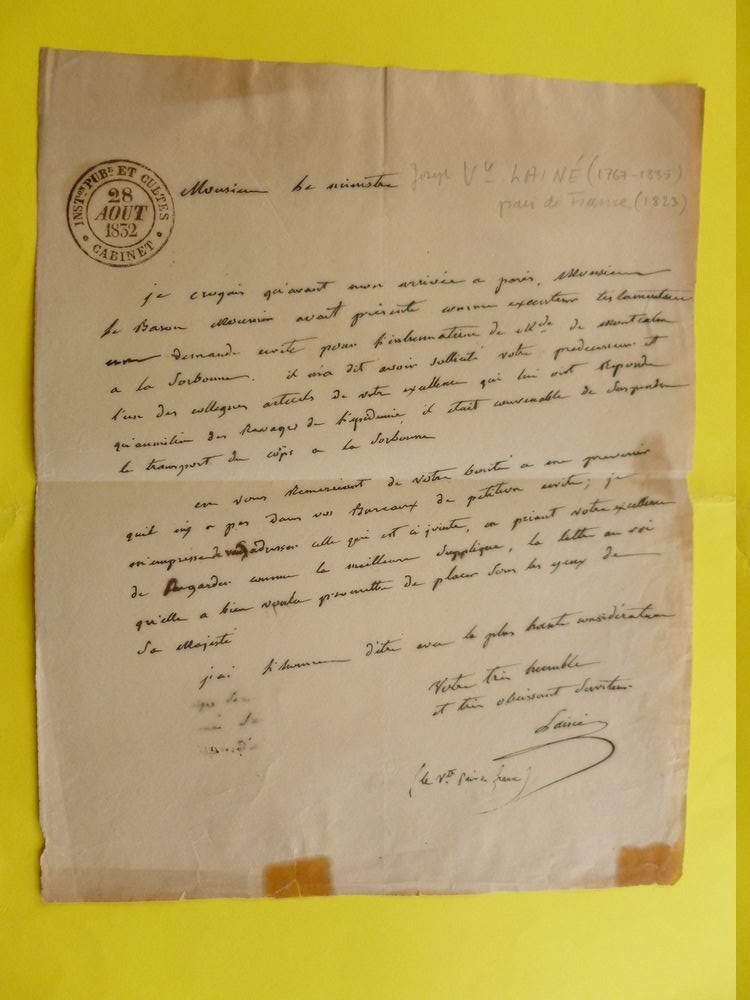 INST.on PUB.e ET CULTES
28
AOUT
1832
CABINET
Monsieur le ministre
Joseph Vte LAINÉ (1767-1835)
pair de France (1823)
je croyais qu'avant mon arrivée a paris, Monsieur
le Baron Mounier avait présenté comme executeur testamentaire
demande ecrite pour l'inhumation de Mde de Montcalm
a la Sorbonne. il m'a dit avoir sollicité votre predecesseur et
l'un des collegues actuels de votre excellence qui lui ont repondu
qu'au milieu des Ravages de l'epidemie, il etait convenable de Suspendre
le transport du corps a la Sorbonne
en vous Remerciant de votre bonté a me prevenir
qu'il n'y a pas dans vos Bureaux de petition ecrite; je
m'empresse de vous adresser celle qui est ci jointe, en priant votre excellence
de Regarder comme la meilleure Supplique, la lettre au roi
qu'elle a bien voulu promettre de placer Sous les yeux de
Sa Majesté
j'ai l'honneur d'être avec la plus haute consideration
Votre très humble
et très obeissant Serviteur
Lainé
(le Vte pair de france)